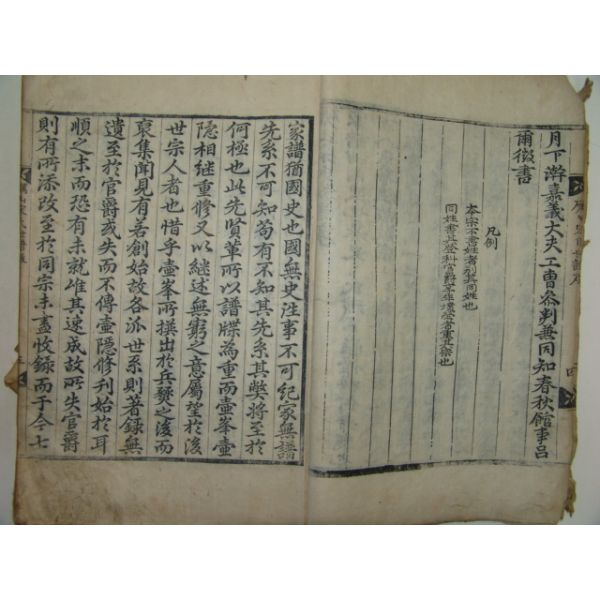 月下澣嘉義大夫工曹參判兼同知春秋館事呂
爾徵書
凡例
本宗不書姓者別其同姓也
同姓書其登科官爵享年墳墓者重其榮也
家譜猶國史也國無史法事不可紀家無譜
先系不可知苟有不知其先系其獘將至於
何極也此先賢輩所以譜牒為重而壺峯壺
隠相継重修又以継述無窮之意屬望於後
世宗人者也惜乎壺峯所撰出於兵燹之後而
裒集聞見有若創始故各派世系則著録無
遺至於官爵或失而不傳壺隠修刊始於耳
順之末而恐有未就雖其速成故所失官爵
則有所添改至於同宗未盡收錄而于今七